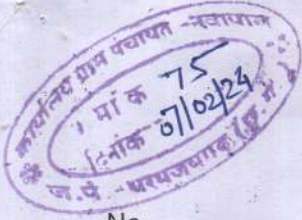 कार्यालय ग्राम पंचायत - नवापारा
मां क 75
दिनांक 07/02/24
ज.पं. धरमजयगढ़ (छ.ग.)
No